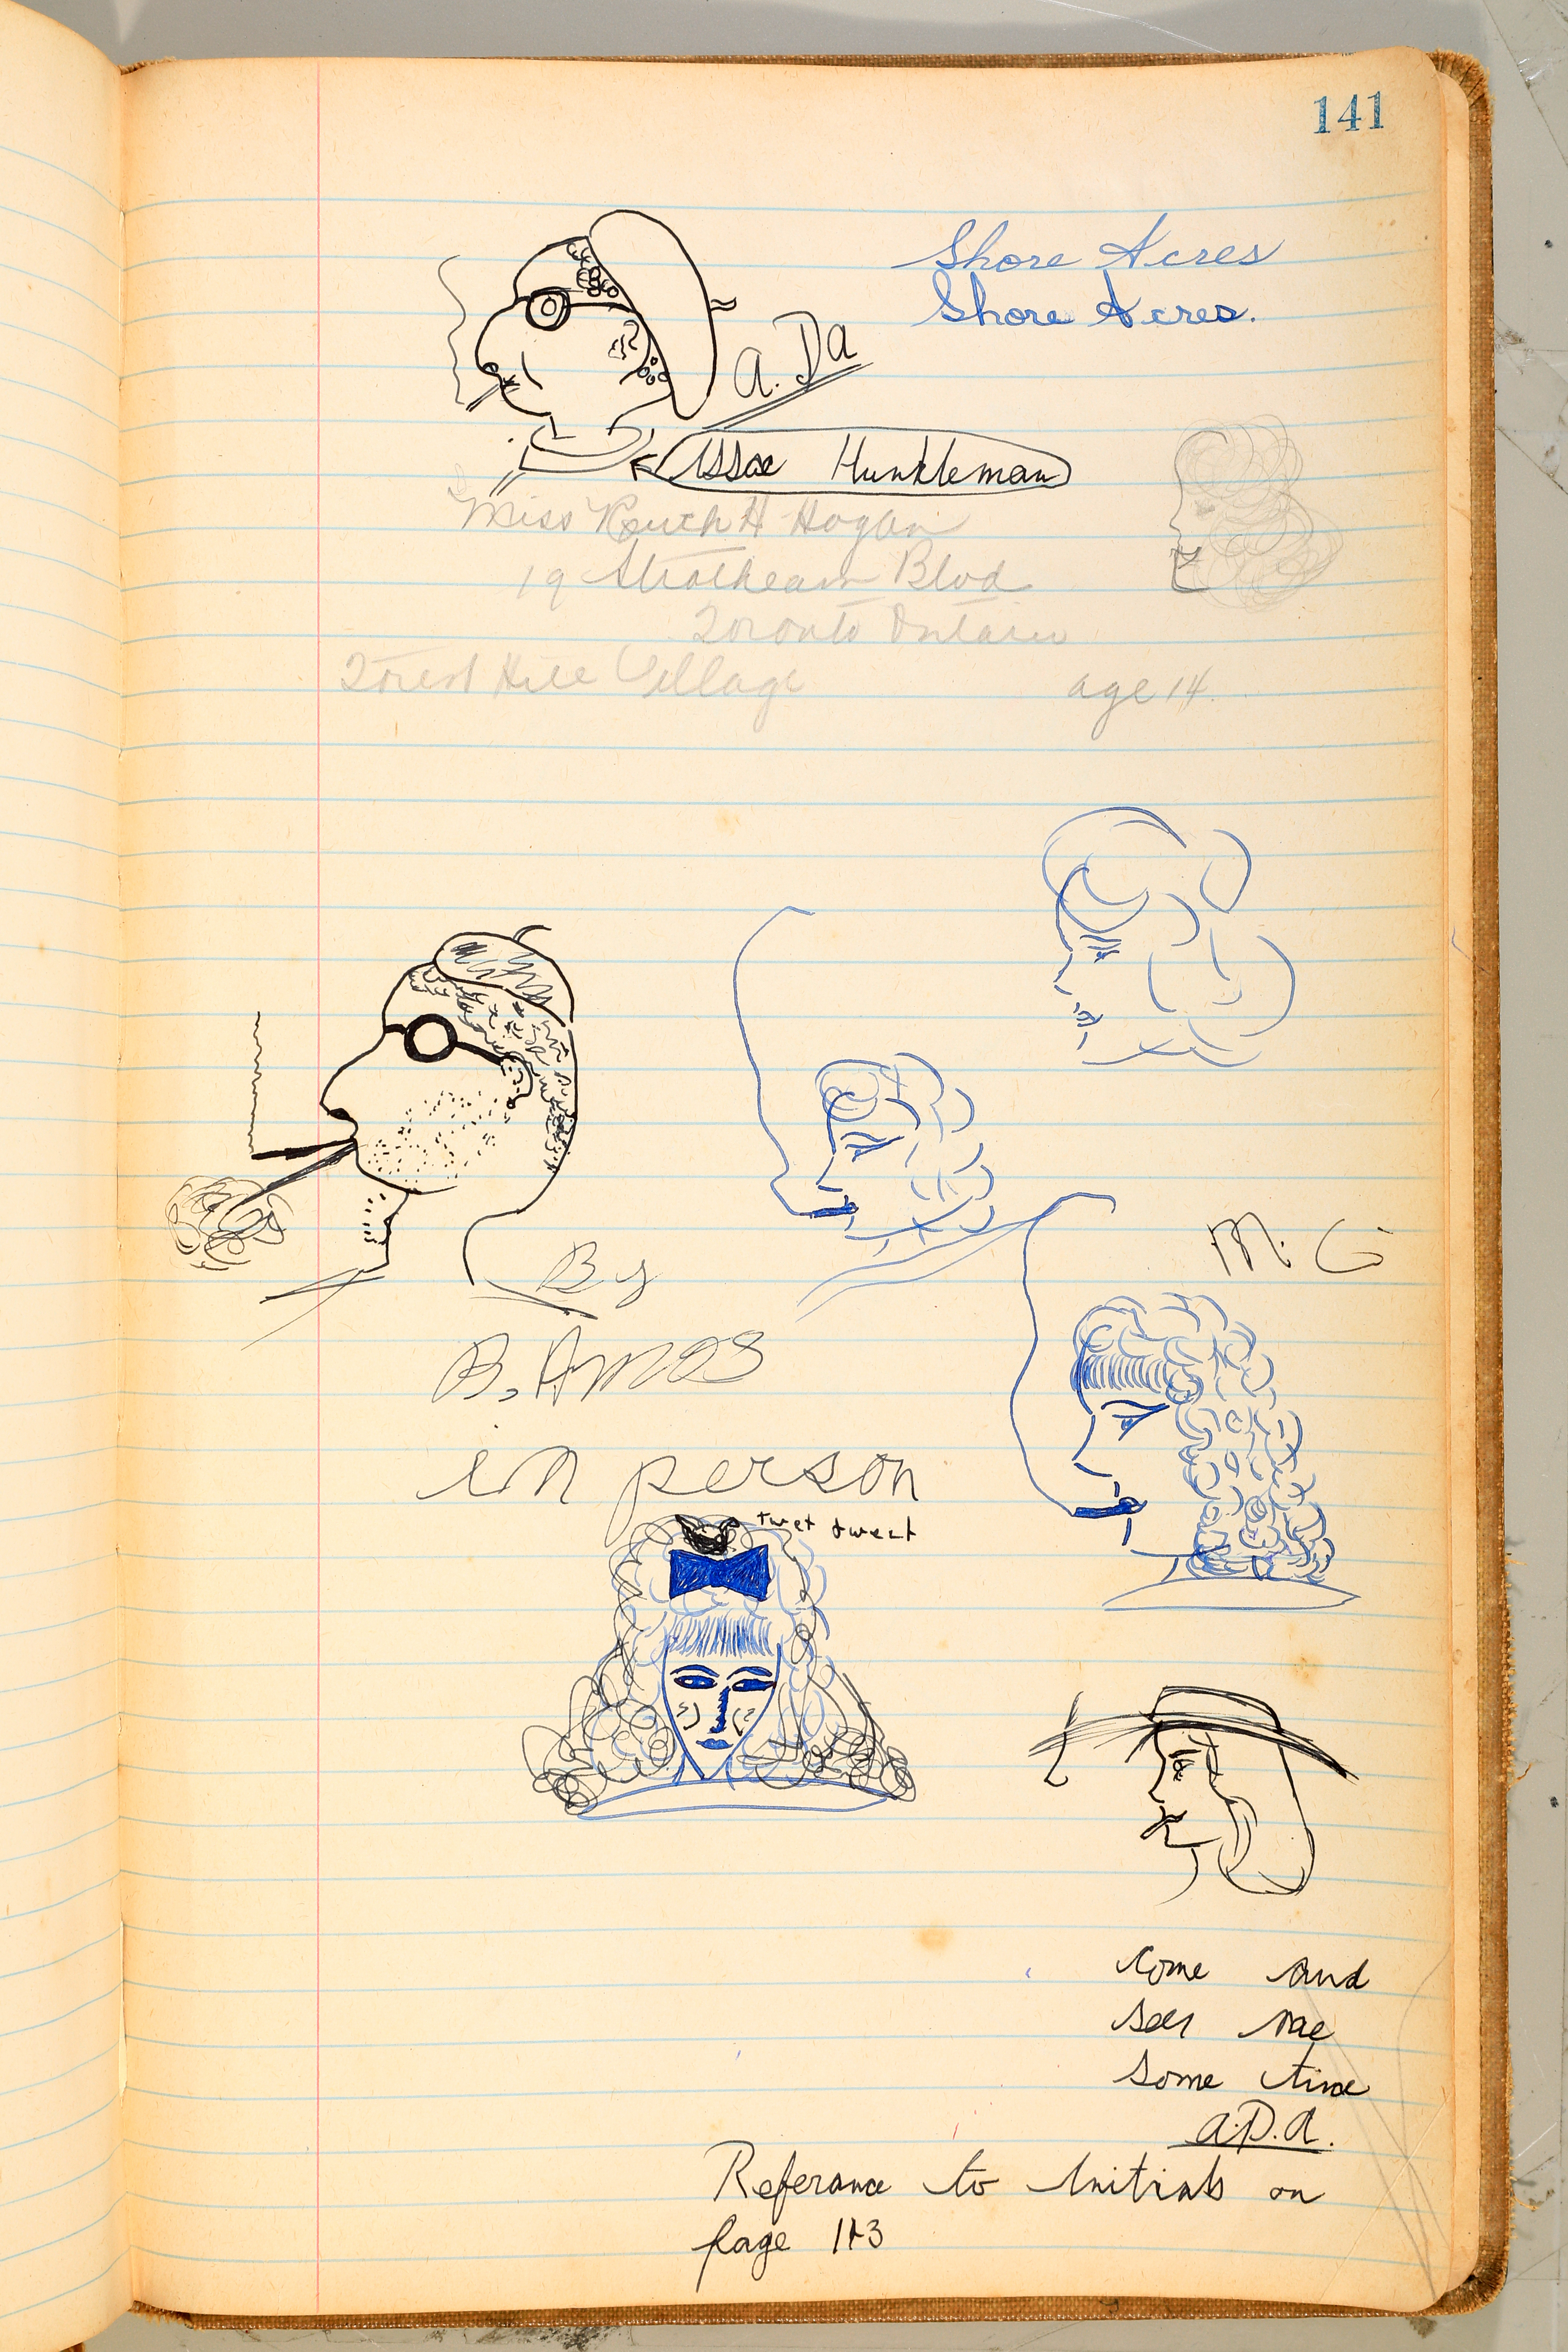 141
Shore Acres
Shore Acres.
a. Da
Issac Hunkleman
Miss Ruth H Hogan
19 Strathearn Blvd
Toronto Ontario
Forest Hill Village age 14.
M. G
By
B. Amos
in person
twet tweet
Come and
see me
some time
a.D.a.
Referance to Initials on
page 143